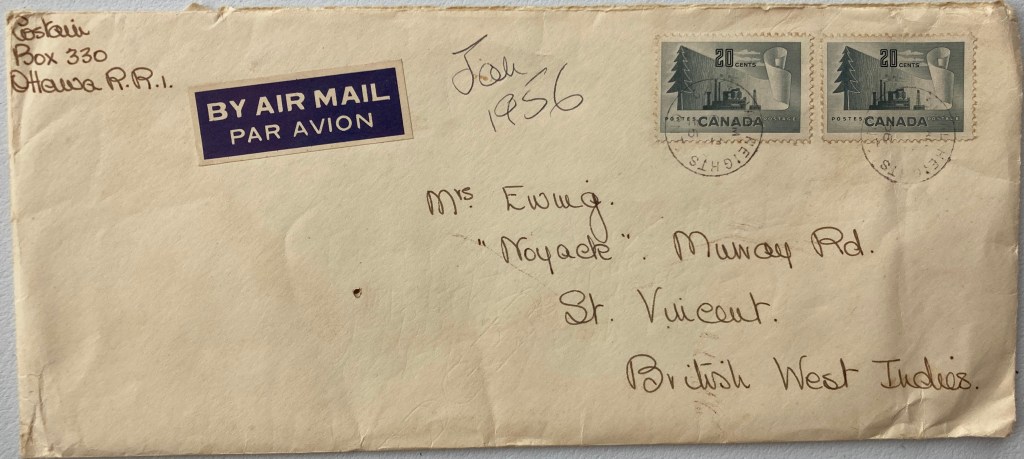 Costain
Box 330
Ottawa R.R.1.
BY AIR MAIL
PAR AVION
Jan
1956
20 CENTS
POSTES CANADA POSTAGE
20 CENTS
POSTES CANADA POSTAGE
HEIGHTS
HEIGHTS
Mrs Ewing.
"Noyack". Murray Rd.
St. Vincent.
British West Indies.